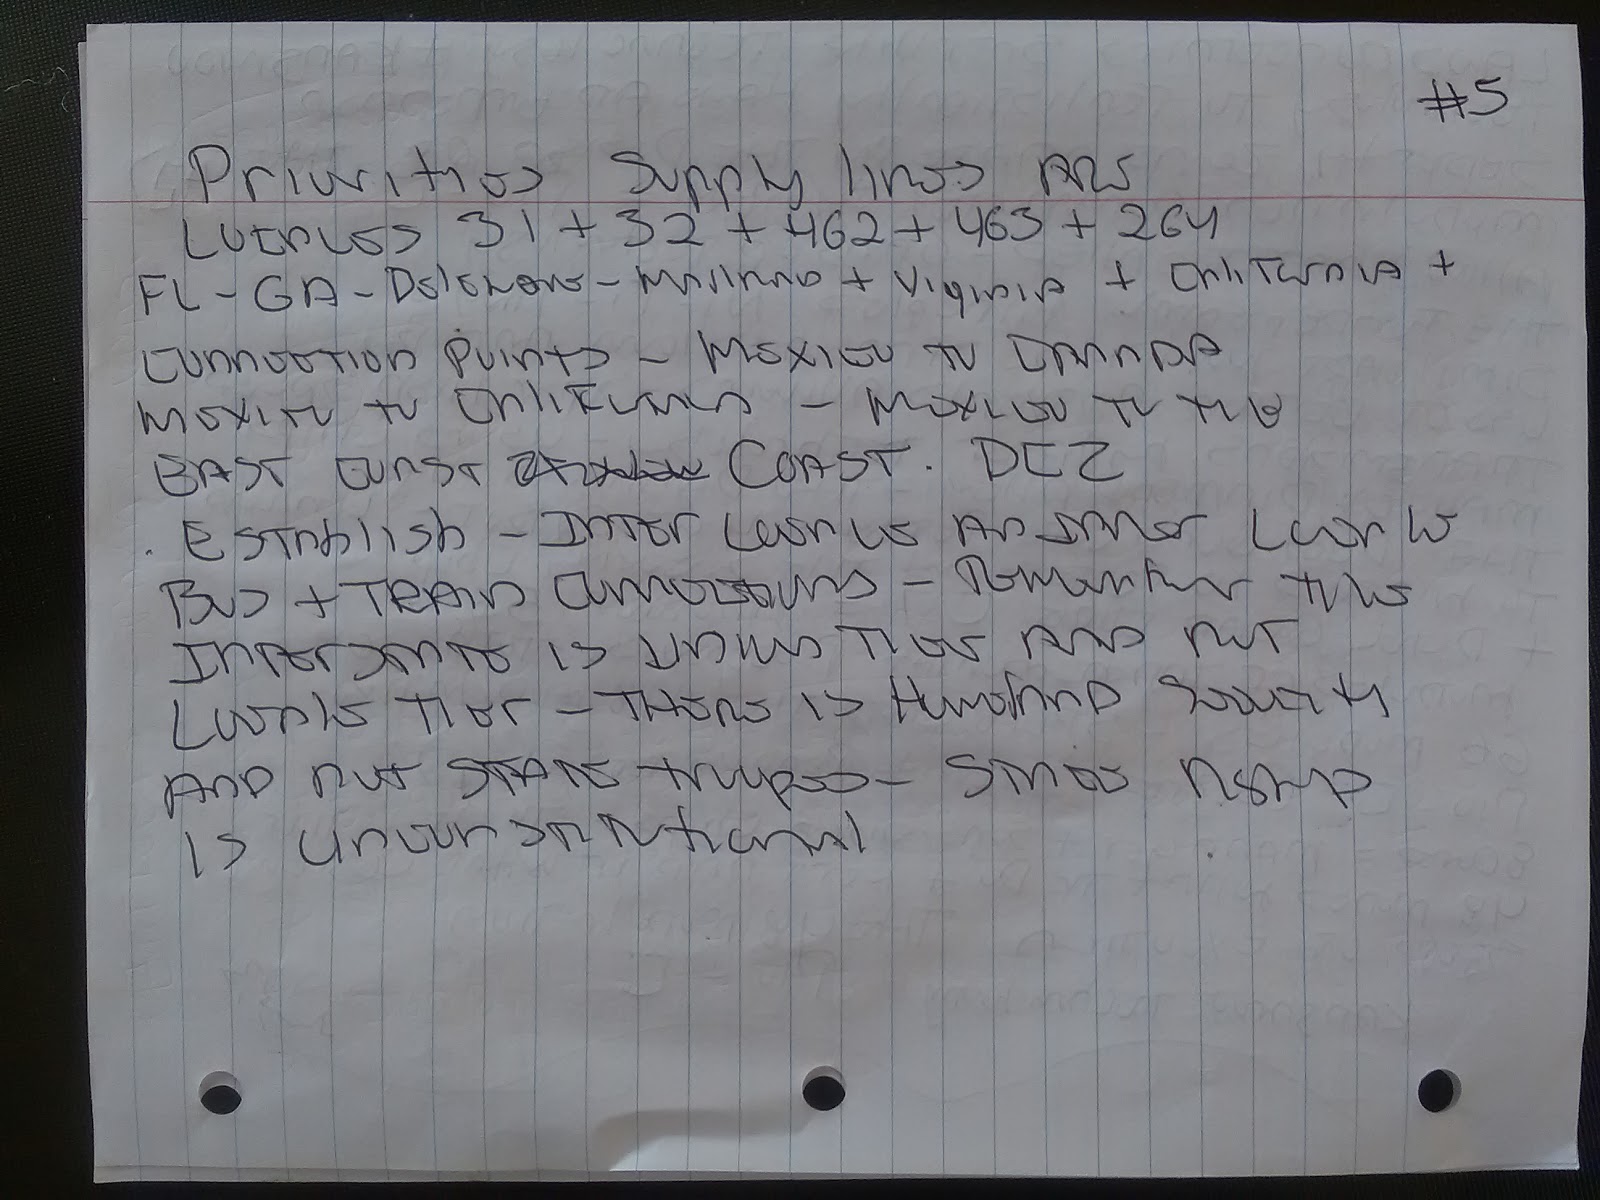 #5
Priorities Supply lines are
Locales 31 + 32 + 462 + 463 + 264
FL - GA - Delaware - Maryland + Virginia + California +
Connection Points - Mexico to Canada
Mexico to California - Mexico to the
EAST Coast COAST. DEZ
Establish - Inter Locale an Inner Locale
Bus + TRAIN Connections - Remember the
Interstate is Union Tier and not
Locale tier - There is Homeland Security
And not STATE troopers - Since NSMD
is unconstitutional